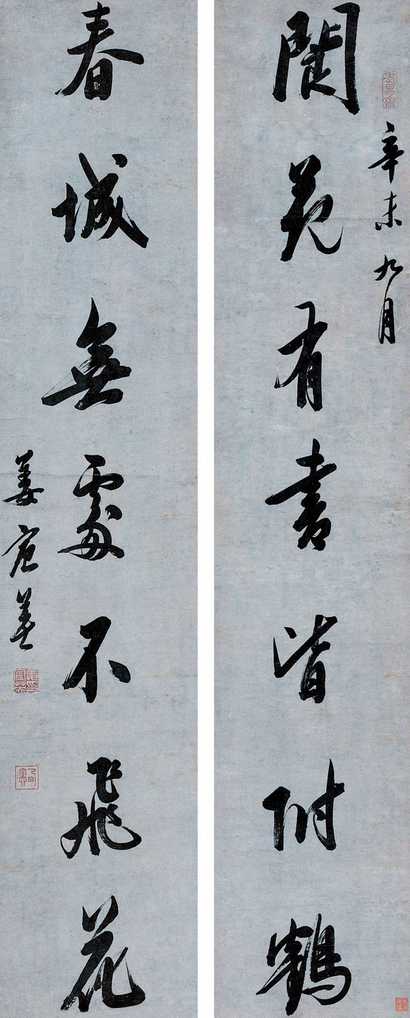 辛未九月
閬苑有書皆附鶴
春城無處不飛花
姜宸英